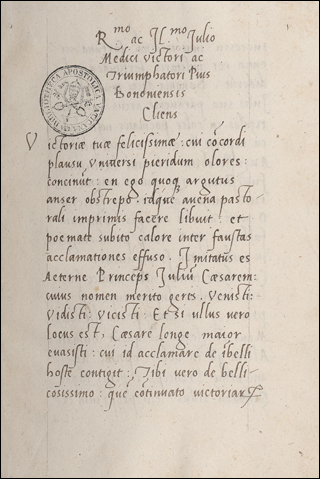 Rmo ac Ilmo Julio
Medici Victori ac
Triumphatori Pius
Bononiensis
Cliens
Victoriæ tuæ felicissimæ: cui cōcordi
plausu Vniversi pieridum olores:
concinūt: en ego quoq argutus
anser obstrepo. idque avena pasto
rali imprimis facere libuit et
poemate subito calore inter faustas
acclamationes effuso. Imitatus es
Aeterne Princeps Julium Cæsarem:
cuius nomen merito geris. Venisti:
Vidisti: Vicisti: Et si ullus vero
locus est, Cæsare longe maior
evasisti: cui id acclamare de ībelli
hoste contigit: Tibi vero de belli
cosissimo: que cōtinuato victoriar